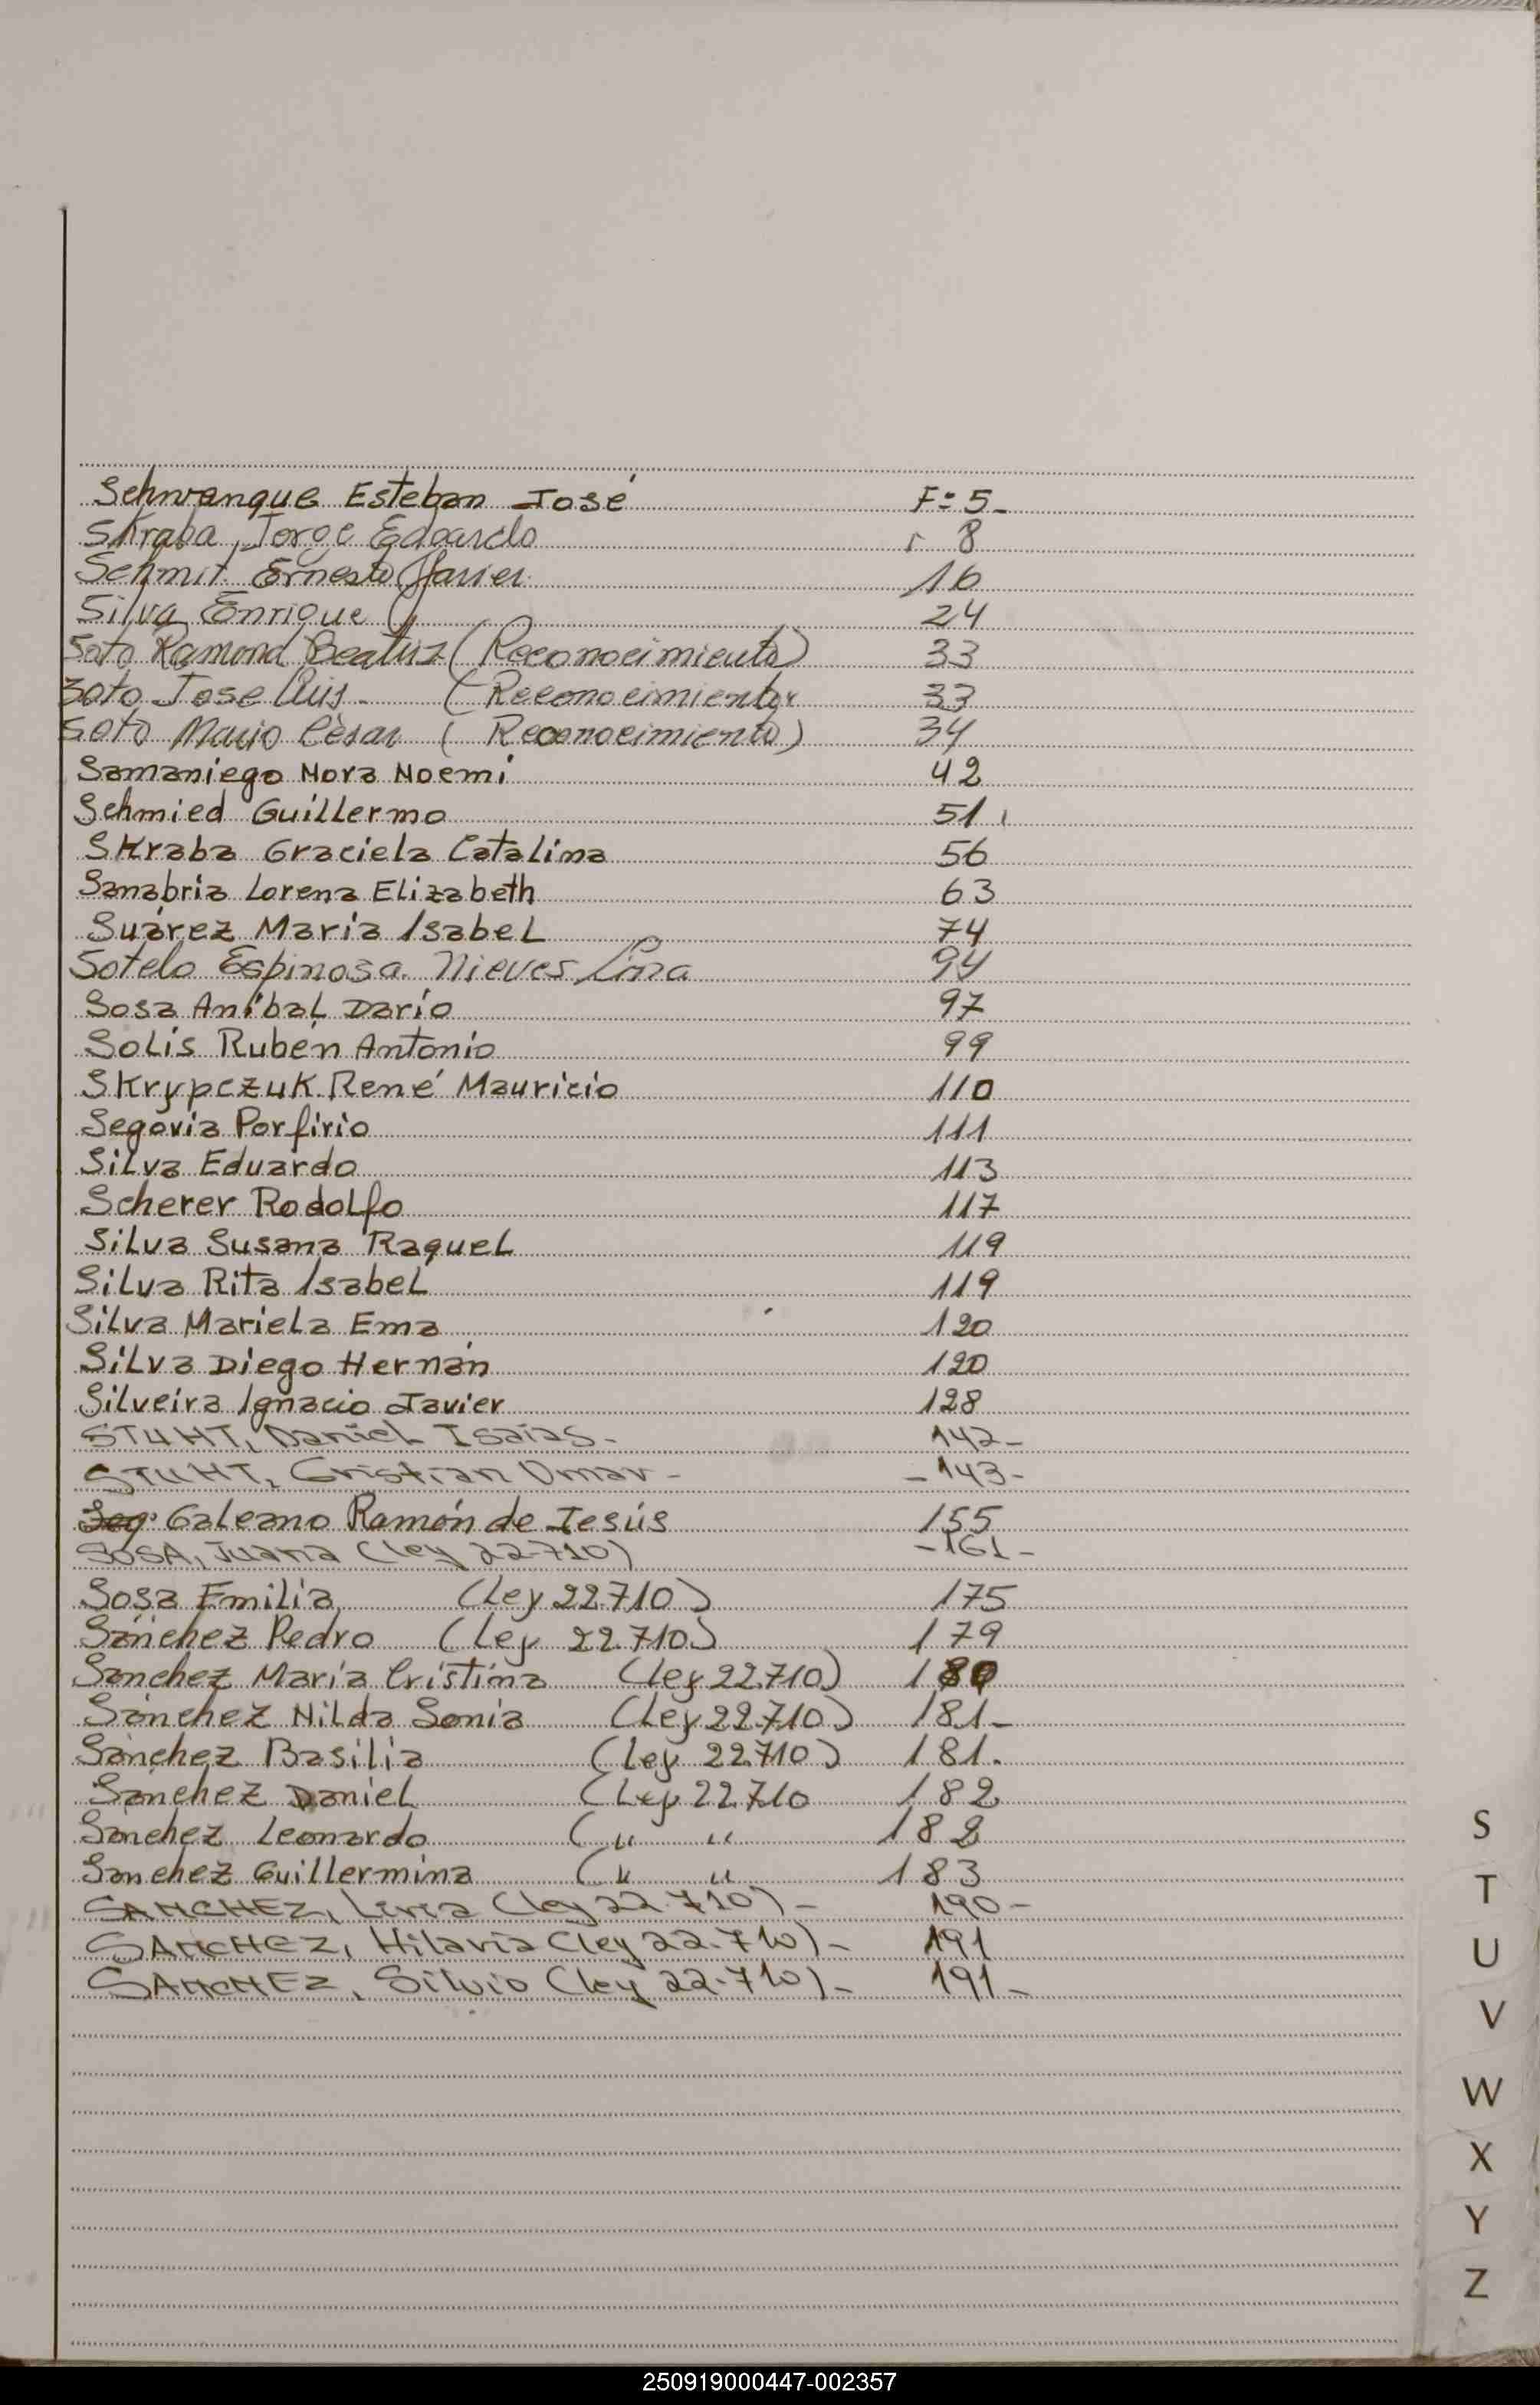 Schvangue Esteban José F= 5-
Skraba, Jorge Edgardo " 8
Schmit Ernesto Javier 16
Silva Enrique 24
Soto Ramona Beatriz (Reconocimiento) 33
Soto Jose Luis - (Reconocimiento) 33
Soto Mario César (Reconocimiento) 34
Samaniego Nora Noemi 42
Schmied Guillermo 51
Skraba Graciela Catalina 56
Sanabria Lorena Elizabeth 63
Suárez Maria Isabel 74
Sotelo Espinosa Nieves Lina 94
Sosa Aníbal Darío 97
Solis Rubén Antonio 99
Skrypczuk René Mauricio 110
Segovia Porfirio 111
Silva Eduardo 113
Scherer Rodolfo 117
Silva Susana Raquel 119
Silva Rita Isabel 119
Silva Mariela Ema 120
Silva Diego Hernán 120
Silveira Ignacio Javier 128
STUHT, Daniel Isaías- 142-
STUHT, Cristian Omar- -143-
Seg. Galeano Ramón de Jesús 155
SOSA, Juana (ley 22.710) -161-
Sosa Emilia (Ley 22.710) 175
Sánchez Pedro (Ley 22.710) 179
Sánchez María Cristina (ley 22.710) 180
Sánchez Nilda Sonia (Ley 22.710) 181-
Sánchez Basilia (Ley 22.710) 181.
Sánchez Daniel (Ley 22.710 182
Sánchez Leonardo ( " " 182
Sánchez Guillermina ( " " 183
SANCHEZ, Livia (ley 22.710)- 190-
SANCHEZ, Hilaria (ley 22.710)- 191
SANCHEZ, Silvio (ley 22.710)- 191-
S
T
U
V
W
X
Y
Z
250919000447-002357